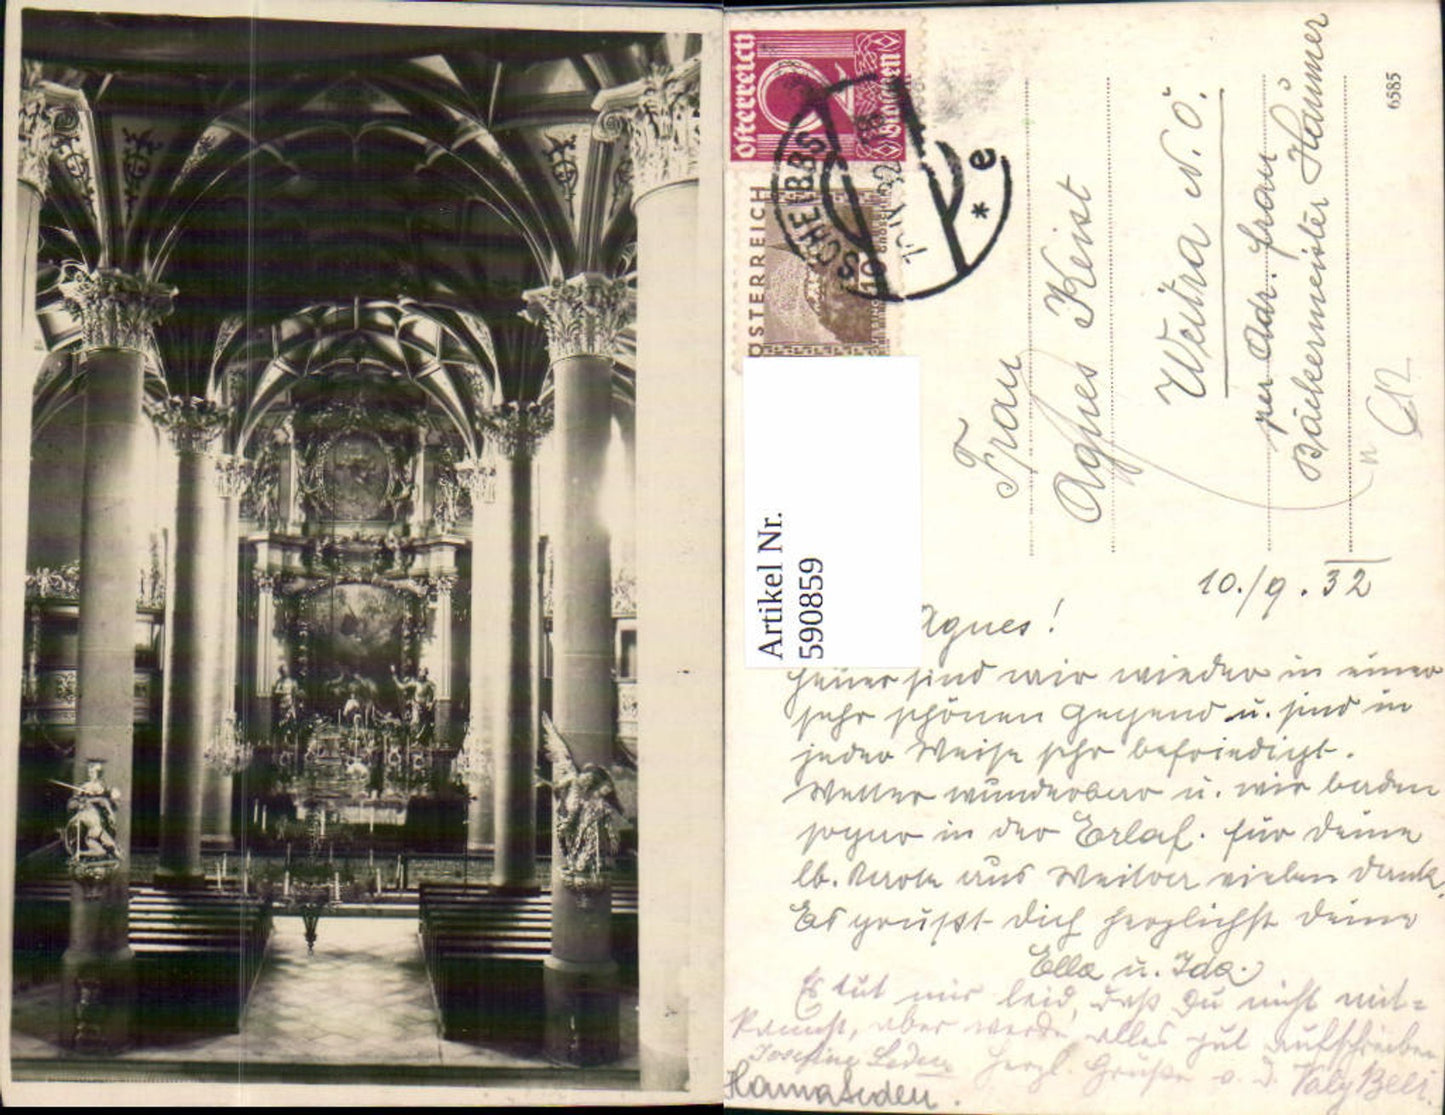 Österreich
2
Groschen
ÖSTERREICH
10
GROSCHEN
SCHEIBBS
* e
Artikel Nr.
590859
6585
Frau
Agnes Keist
Weitra N.Ö.
per Adr. Frau
Bäckermeister Haumer
10./9.32
Agnes!
Heuer sind wir wieder in einer
sehr schönen Gegend u. sind in
jeder Weise sehr befriedigt.
Wetter wunderbar u. wir baden
sogar in der Erlaf. Für Deine
lb. Karte aus Weitra vielen Dank.
Es grüßt Dich herzlichst Deine
Ella u. Ida.
Es tut mir leid, daß Du nicht mit-
kannst, aber werde alles gut aufschreiben
Josefine Herzl. Grüße v. d. Valy Beer.